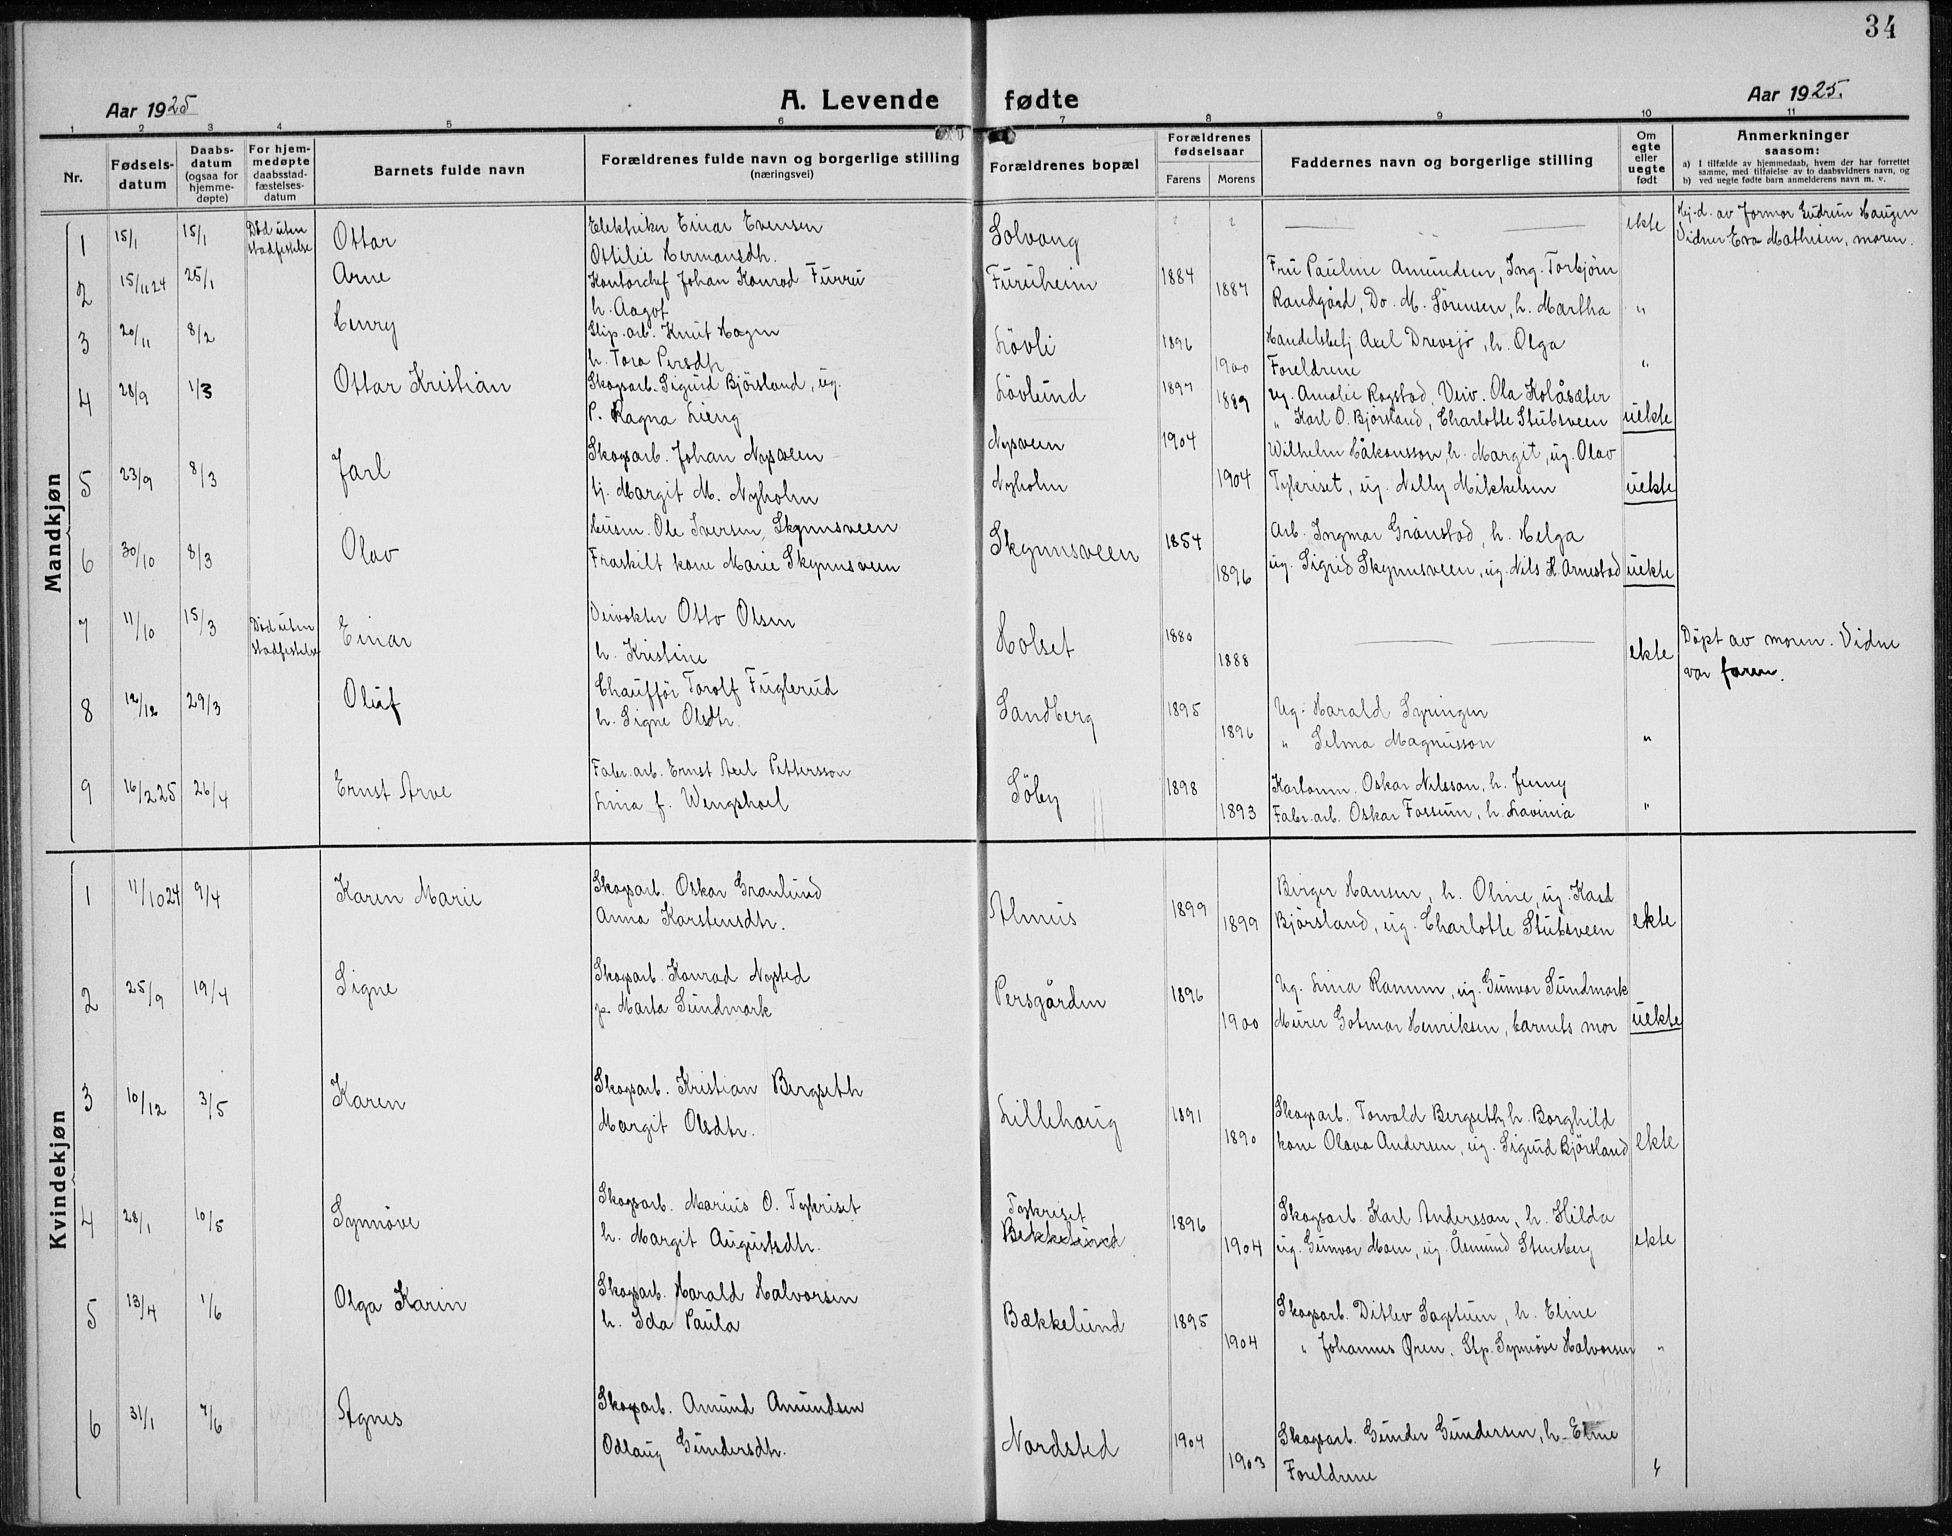 34
Aar 1925
A. Levende fødte
Aar 1925.
1 2 3 4 5 6 7 8 9 10 11
Nr.
Fødsels-
datum
Daabs-
datum
(ogsaa for
hjemme-
døpte)
For hjem-
medøpte
daabsstad-
fæstelses-
datum
Barnets fulde navn
Forældrenes fulde navn og borgerlige stilling
(næringsvei)
Forældrenes bopæl
Forældrenes
fødselsaar
Farens Morens
Faddernes navn og borgerlige stilling
Om
egte
eller
uegte
født
Anmerkninger
saasom:
a) I tilfælde av hjemmedaab, hvem der har forrettet
samme, med tilføielse av to daabsvidners navn, og
b) ved uegte fødte barn anmelderens navn m. v.
Mandkjøn
1 15/1 15/1 Død uten Ottar Elektriker Einar Evensen Solvang ekte Hj.d. av Jormor Gudrun Haugen
stadfestelse Ottilie Hermansdtr. Vidner Eva Mathisen, moren.
2 15/11 24 25/1 Arne Kontorchef Johan Konrad Furru Furuheim 1884 Fru Pauline Amundsen, Ing. Torbjörn
h. Aagot 1887 Randgård, Do. M. Sörensen, h. Martha "
3 20/11 8/2 Henry Slip.arb. Knut Hagen Lövli 1896 Handelsbetj. Axel Drevsjö, h. Olga
h. Tora Persdtr. 1900 Foreldrene "
4 28/9 1/3 Ottar Kristian Skogsarb. Sigurd Björsland, ug. Lövlund 1897 ug. Amalie Rogstad, Veiv. Ola Kolåsæter
P. Ragna Lieng 1889 " Karl O. Björsland, Charlotte Stubsveen uekte
5 23/9 8/3 Jarl Skogsarb. Johan Nysveen Nysveen 1904 Wilhelm Håkonsson, h. Margit, ug. Olav
tj. Margit M. Nyholm Nyholm 1904 Tyskriset, ug. Nelly Mikkelsen uekte
6 30/10 8/3 Olav Husm. Ole Iversen, Skynnsveen Skynnsveen 1854 Arb. Ingmar Grönstad, h. Helga
Fraskilt kone Marie Skynnsveen 1896 ug. Sigrid Skynnsveen, ug. Nils H. Arnestad uekte
7 11/10 15/3 Död uten Einar Veivokter Otto Olsen Holset 1880 ekte Döpt av moren. Vidne
stadfestelse h. Kristine 1888 var faren.
8 12/12 29/3 Oluf Chaufför Torolf Fuglerud Sandberg 1895 Ug. Harald Syringen
h. Signe Olsdtr. 1896 " Selma Magnusson "
9 16/2 25 26/4 Ernst Arve Fabr.arb. Ernst Axel Pettersson Söby 1898 Kartonm. Oskar Nilsson, h. Jenny
Lina f. Wengshoel 1893 Fabr.arb. Oskar Fossum, h. Lavinia "
Kvindekjøn
1 11/10 24 9/4 Karen Marie Skogsarb. Oskar Granlund Almus 1899 Birger Hansen, h. Oline, ug. Karl
Anna Karstensdtr. 1899 Björsland, ug. Charlotte Stubsveen ekte
2 25/9 19/4 Signe Skogsarb. Konrad Nysted Persgården 1896 Ug. Lina Ramm, ug. Gunvor Sundmark
p. Marta Sundmark 1900 Murer Gotmar Henriksen, barnets mor uekte
3 10/12 3/5 Karen Skogsarb. Kristian Bergseth Lillehaug 1891 Skogsarb. Torvald Bergseth, h. Borghild
Margit Olsdtr. 1890 kone Olava Andersen, ug. Sigurd Björsland ekte
4 28/1 10/5 Synnöve Skogsarb. Marius O. Tyskriset Tyskriset 1896 Skogsarb. Karl Andersson, h. Hilda
h. Margit Augustsdtr. Bekkelund 1904 ug. Gunvor Moen, ug. Åsmund Stensberg ekte
5 13/4 1/6 Olga Karin Skogsarb. Harald Halvorsen Bækkelund 1895 Skogsarb. Ditlev Sagstuen, h. Eline
h. Ida Paula 1904 " Johannes Øren, Slp. Synnöve Halvorsen "
6 31/1 7/6 Agnes Skogsarb. Amund Amundsen Nordsted 1904 Skogsarb. Gunder Gundersen, h. Eline
Odlaug Gundersdtr. 1903 Foreldrene "